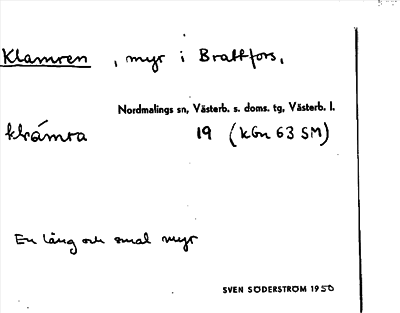 Klamren, myr i Brattfors,
Nordmalings sn, Västerb. s. doms. tg, Västerb. l.
19 (KGn 63 SM)
En lång och smal myr
SVEN SÖDERSTRÖM 1950